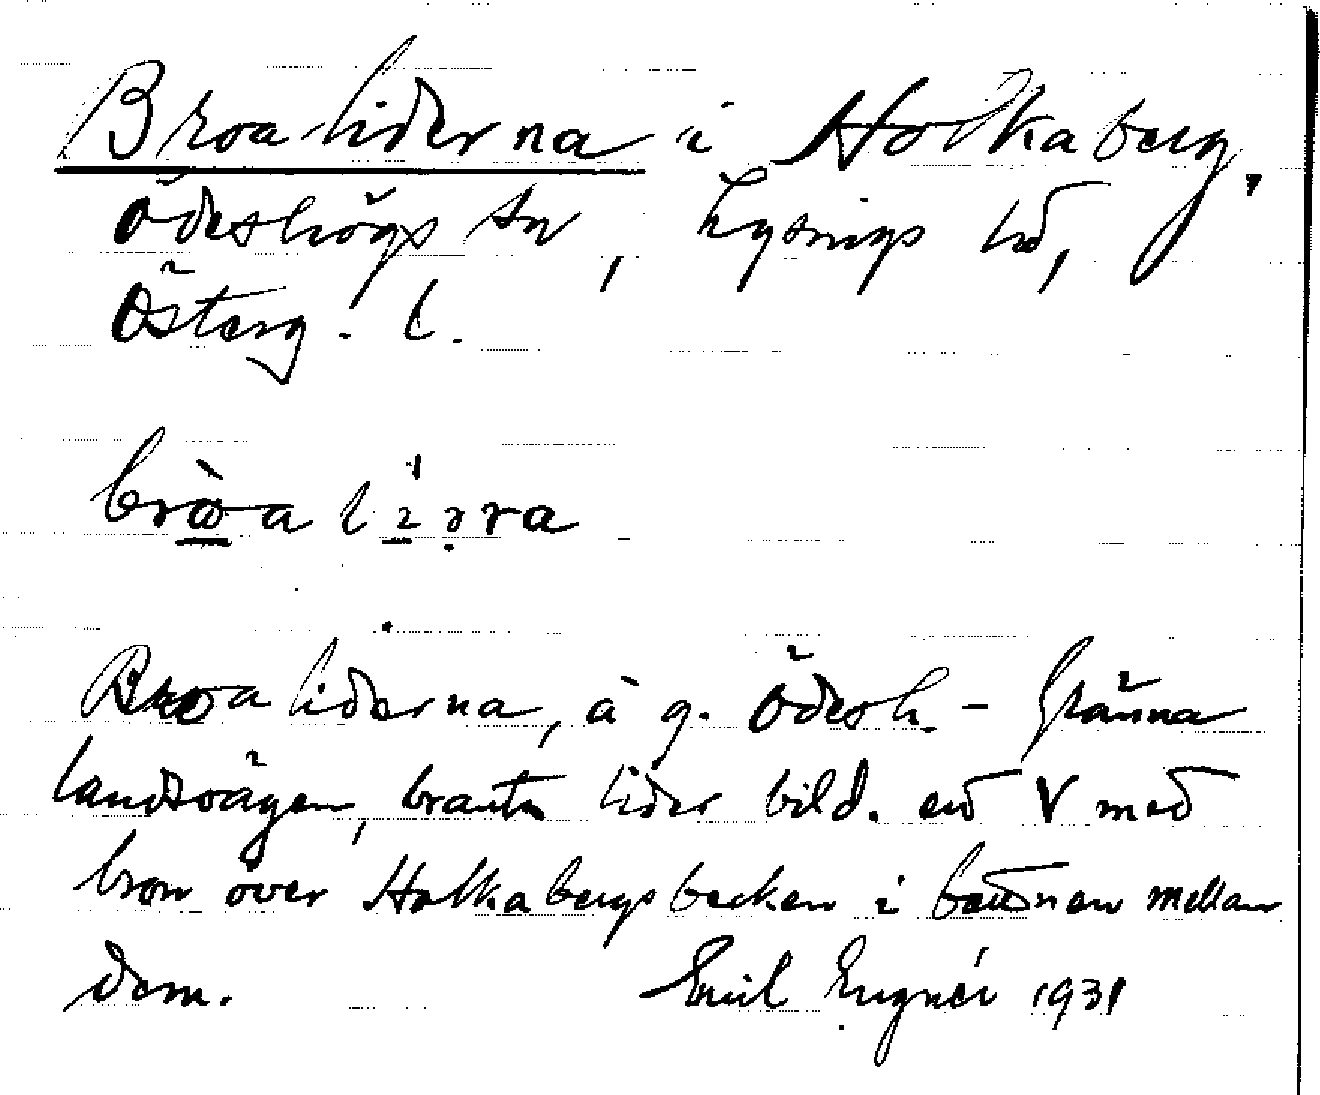 Broaliderna i Holkaberg,
Ödeshögs sn, Lysings hd,
Österg. l.
Broaliderna, å g. Ödesh. - Gränna
landsvägen, branta lider bild. ett V med
bron över Holkabergsbecken i bottnen mellan
dem. Emil Engnér 1931